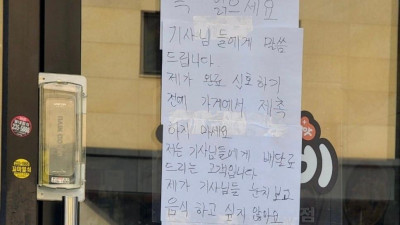 꼭 읽으세요
기사님들에게 말씀
드립니다
제가 완료 신호하기
전에 가게에서 재촉
하지 마세요
저는 기사님들에게 배달로
드리는 고객입니다
제가 기사님들 눈치보고
음식 하고 싶지 않아요
점